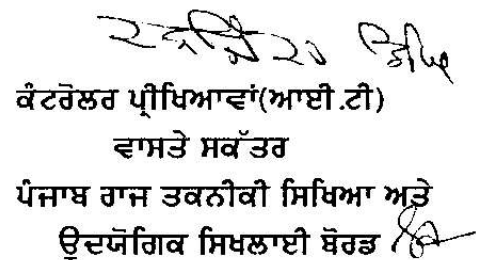 ਕੰਟਰੋਲਰ ਪ੍ਰੀਖਿਆਵਾਂ(ਆਈ.ਟੀ)
ਵਾਸਤੇ ਸਕੱਤਰ
ਪੰਜਾਬ ਰਾਜ ਤਕਨੀਕੀ ਸਿਖਿਆ ਅਤੇ
ਉਦਯੋਗਿਕ ਸਿਖਲਾਈ ਬੋਰਡ